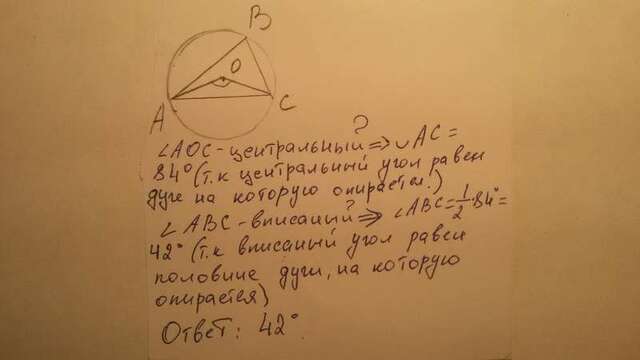 B
O
A
C
∠AOC - центральный ? => ∪AC =
84° (т.к центральный угол равен
дуге на которую опирается.)
∠ABC - вписаный ? => ∠ABC = 1/2 · 84° =
42° (т.к вписаный угол равен
половине дуги, на которую
опирается)
Ответ: 42°